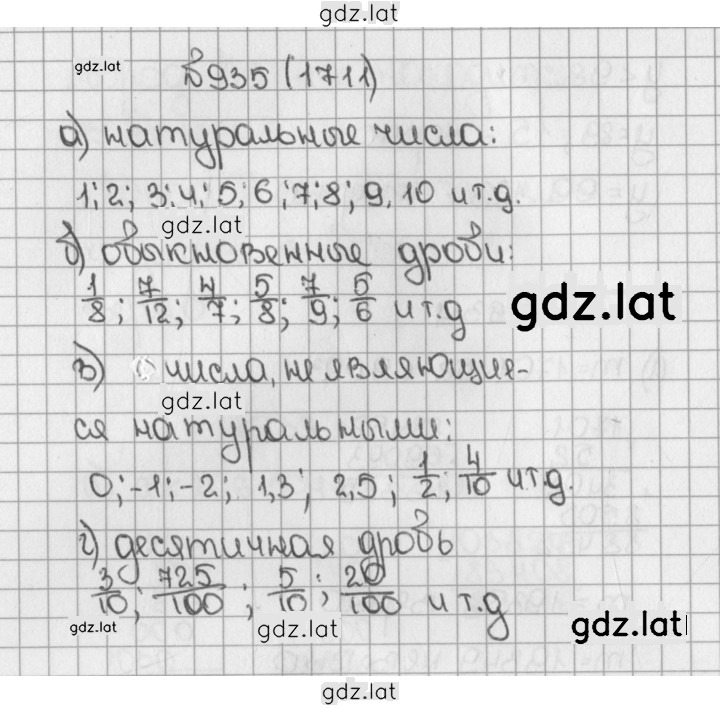 gdz.lat
gdz.lat
№935 (1711)
а) натуральные числа:
1; 2; 3; 4; 5; 6; 7; 8; 9, 10 и т.д.
gdz.lat
б) обыкновенные дроби:
1/8; 7/12; 4/7; 5/8; 7/9; 5/6 и т.д
gdz.lat
в) числа, не являющие-
gdz.lat
ся натуральными:
0; -1; -2; 1,3; 2,5; 1/2; 4/10 и т.д.
г) десятичная дробь
3/10; 725/100; 5/10; 20/100 и т.д
gdz.lat
gdz.lat
gdz.lat
gdz.lat